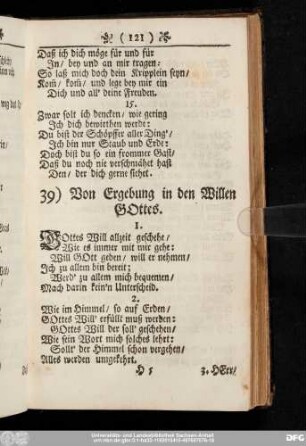 (121)
Daß ich dich möge für und für
In/ bey und an mir tragen:
So laß mich doch dein Kripplein seyn/
Kom̃/ kom̃/ und lege bey mir ein
Dich und all' deine Freuden.
15.
Zwar solt ich dencken/ wie gering
Ich dich bewirthen werde:
Du bist der Schöpffer aller Ding'/
Ich bin nur Staub und Erde:
Doch bist du so ein frommer Gast/
Daß du noch nie verschmähet hast
Den/ der dich gerne siehet.
39) Von Ergebung in den Willen
GOttes.
1.
GOttes Will allzeit geschehe/
Wie es immer mit mir gehe:
Will GOtt geben/ will er nehmen/
Ich zu allem bin bereit;
Werd' zu allem mich bequemen/
Mach darin kein'n Unterscheid.
2.
Wie im Himmel/ so auf Erden/
GOttes Will' erfüllt muß werden:
GOttes Will der soll' geschehen/
Wie sein Wort mich solches lehrt:
Sollt' der Himmel schon vergehen/
Alles werden umgekehrt.
H 5 3. HErr/
Universitäts- und Landesbibliothek Sachsen-Anhalt
DFG